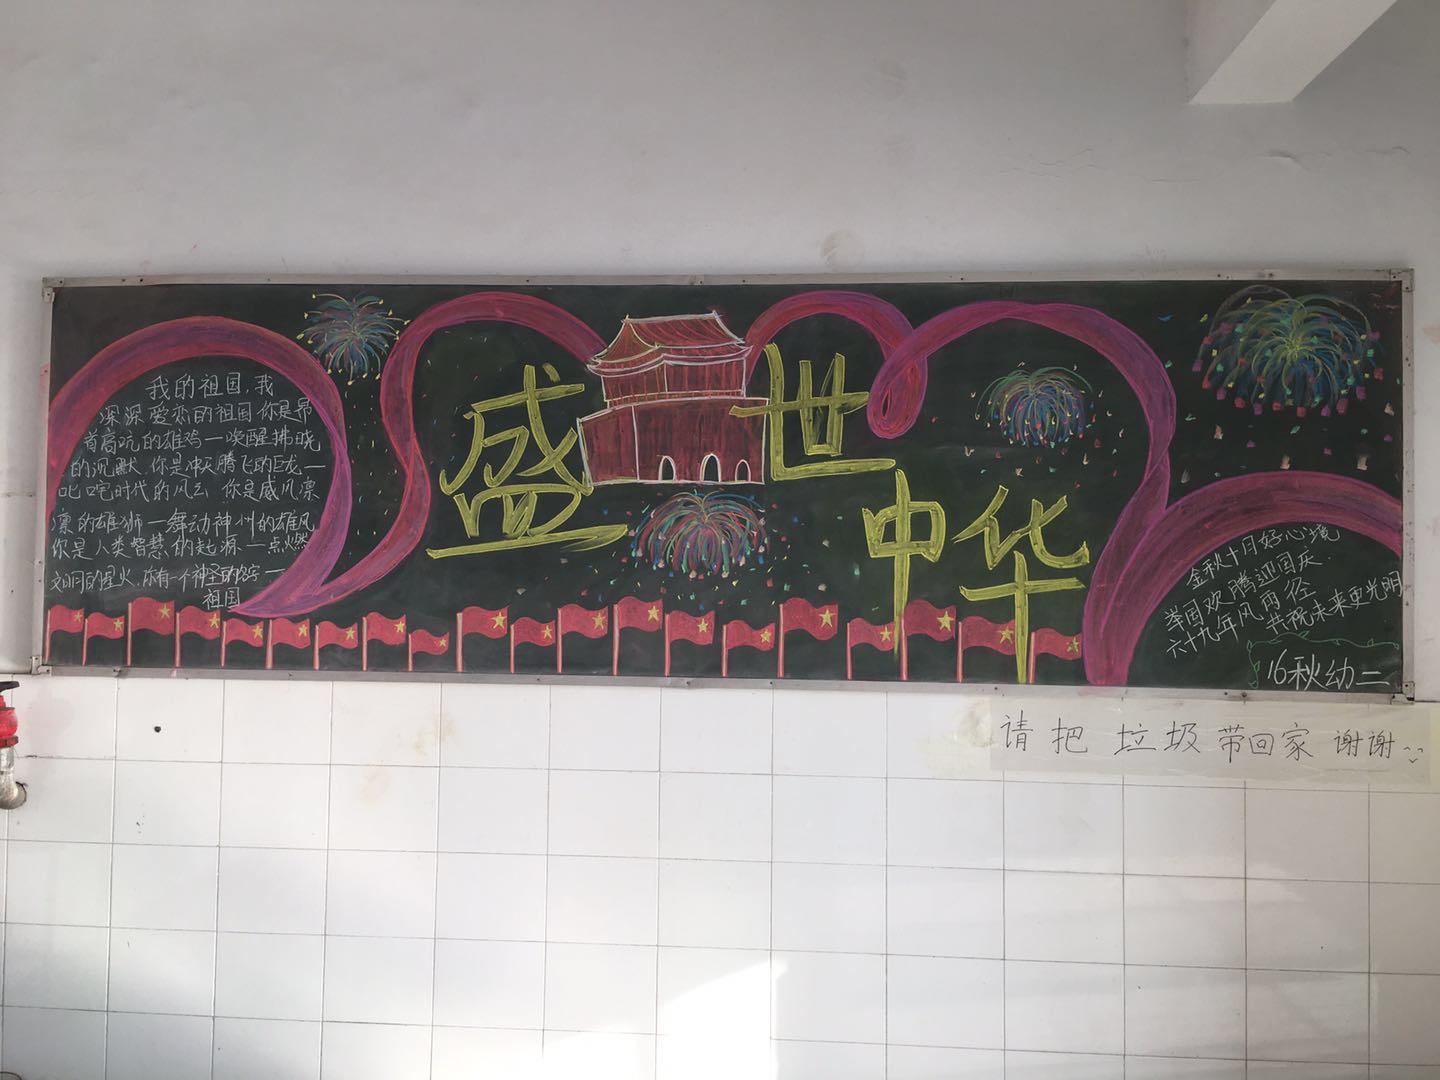 我的祖国,我
深深爱恋的祖国.你是昂
首高吭的雄鸡一唤醒拂晓
的沉默.你是冲天腾飞的巨龙一
叱咤时代的风云 你是威风凛
凛的雄狮一舞动神州的雄风
你是人类智慧的起源一点燃
文明的星火.你有一个神圣的名字一
祖国
盛世
中华
金秋十月好心境
举国欢腾迎国庆
六十九年风雨径
共祝未来更光明
16秋幼二
请把垃圾带回家 谢谢